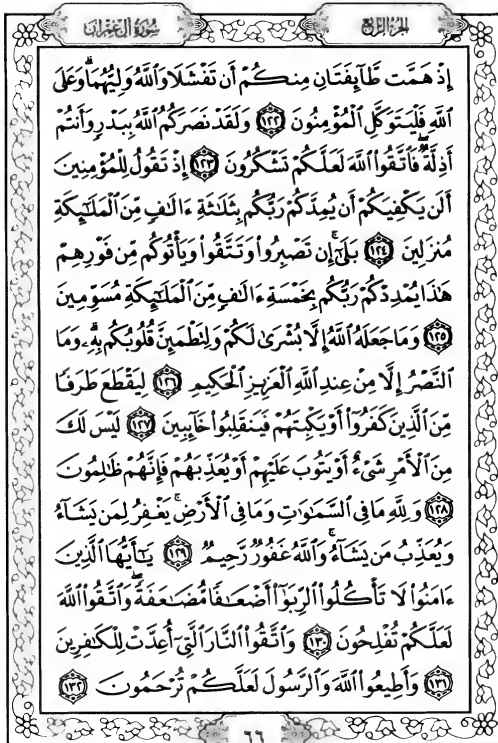 سُورَةُ آلِ عِمْرَانَ
الجُزءُ الرَّابِعُ
إِذْ هَمَّت طَّآئِفَتَانِ مِنكُمْ أَن تَفْشَلَا وَٱللَّهُ وَلِيُّهُمَاۗ وَعَلَى
ٱللَّهِ فَلْيَتَوَكَّلِ ٱلْمُؤْمِنُونَ ١٢٢ وَلَقَدْ نَصَرَكُمُ ٱللَّهُ بِبَدْرٍ وَأَنتُمْ
أَذِلَّةٌۖ فَٱتَّقُوا۟ ٱللَّهَ لَعَلَّكُمْ تَشْكُرُونَ ١٢٣ إِذْ تَقُولُ لِلْمُؤْمِنِينَ
أَلَن يَكْفِيَكُمْ أَن يُمِدَّكُمْ رَبُّكُم بِثَلَٰثَةِ ءَالَٰفٍ مِّنَ ٱلْمَلَٰٓئِكَةِ
مُنزَلِينَ ١٢٤ بَلَىٰٓۚ إِن تَصْبِرُوا۟ وَتَتَّقُوا۟ وَيَأْتُوكُم مِّن فَوْرِهِمْ
هَٰذَا يُمْدِدْكُمْ رَبُّكُم بِخَمْسَةِ ءَالَٰفٍ مِّنَ ٱلْمَلَٰٓئِكَةِ مُسَوِّمِينَ
١٢٥ وَمَا جَعَلَهُ ٱللَّهُ إِلَّا بُشْرَىٰ لَكُمْ وَلِتَطْمَئِنَّ قُلُوبُكُم بِهِۦۗ وَمَا
ٱلنَّصْرُ إِلَّا مِنْ عِندِ ٱللَّهِ ٱلْعَزِيزِ ٱلْحَكِيمِ ١٢٦ لِيَقْطَعَ طَرَفًا
مِّنَ ٱلَّذِينَ كَفَرُوٓا۟ أَوْ يَكْبِتَهُمْ فَيَنقَلِبُوا۟ خَآئِبِينَ ١٢٧ لَيْسَ لَكَ
مِنَ ٱلْأَمْرِ شَىْءٌ أَوْ يَتُوبَ عَلَيْهِمْ أَوْ يُعَذِّبَهُمْ فَإِنَّهُمْ ظَٰلِمُونَ
١٢٨ وَلِلَّهِ مَا فِى ٱلسَّمَٰوَٰتِ وَمَا فِى ٱلْأَرْضِۚ يَغْفِرُ لِمَن يَشَآءُ
وَيُعَذِّبُ مَن يَشَآءُۚ وَٱللَّهُ غَفُورٌ رَّحِيمٌ ١٢٩ يَٰٓأَيُّهَا ٱلَّذِينَ
ءَامَنُوا۟ لَا تَأْكُلُوا۟ ٱلرِّبَوٰٓا۟ أَضْعَٰفًا مُّضَٰعَفَةًۖ وَٱتَّقُوا۟ ٱللَّهَ
لَعَلَّكُمْ تُفْلِحُونَ ١٣٠ وَٱتَّقُوا۟ ٱلنَّارَ ٱلَّتِىٓ أُعِدَّتْ لِلْكَٰفِرِينَ
١٣١ وَأَطِيعُوا۟ ٱللَّهَ وَٱلرَّسُولَ لَعَلَّكُمْ تُرْحَمُونَ ١٣٢
٦٦